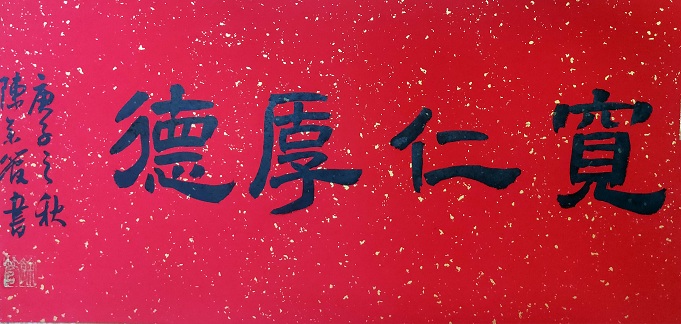 寬仁厚德
庚子之秋
陳
書